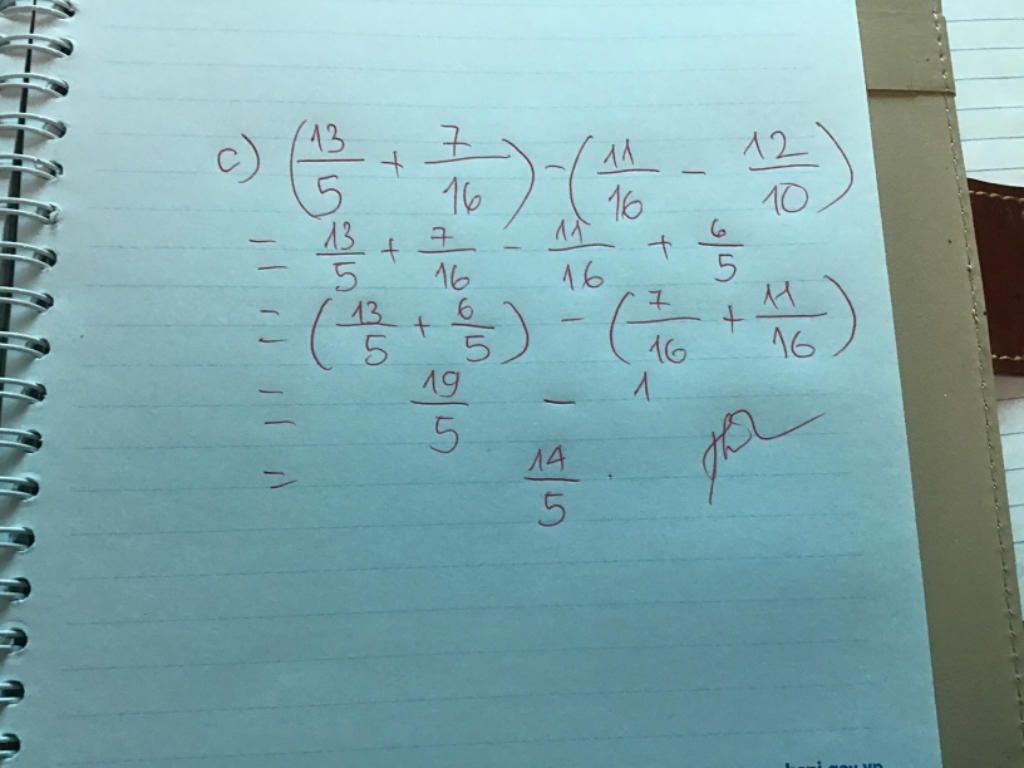 c) (13/5 + 7/16) - (11/16 - 12/10)
= 13/5 + 7/16 - 11/16 + 6/5
= (13/5 + 6/5) - (7/16 + 11/16)
= 19/5 - 1
= 14/5 .